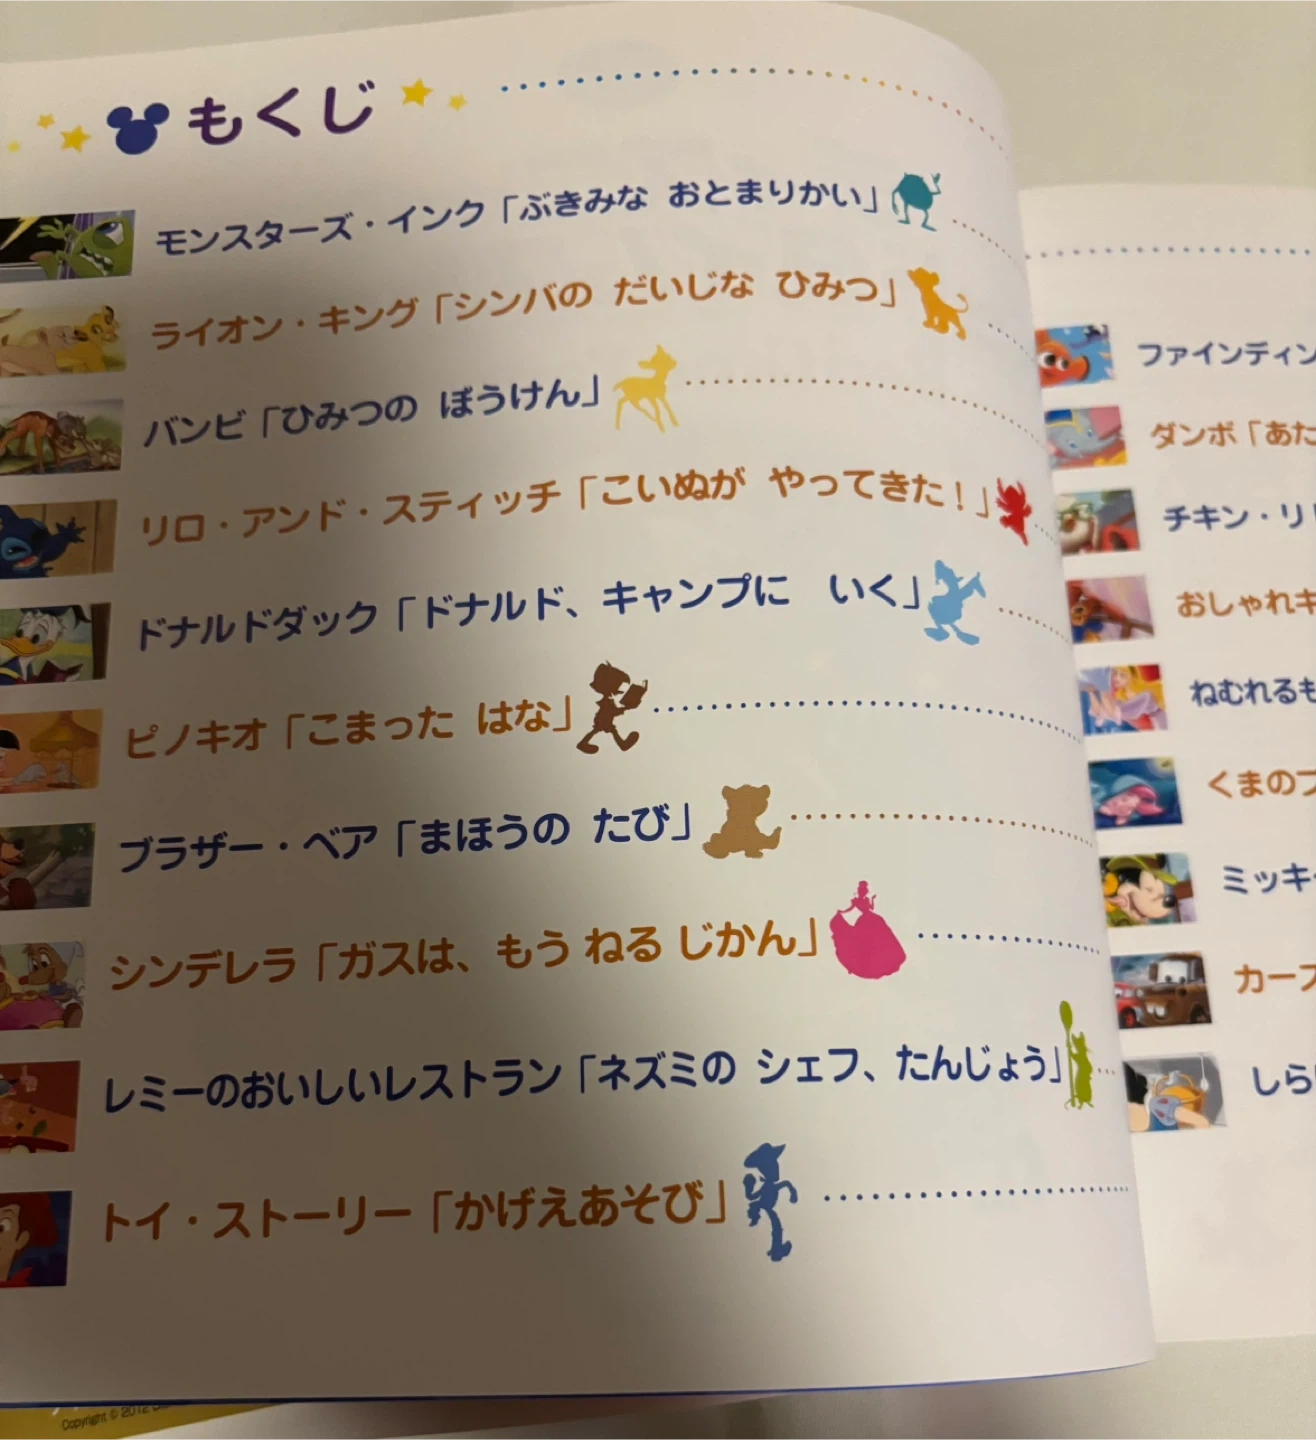 もくじ
モンスターズ・インク「ぶきみな おとまりかい」
ライオン・キング「シンバの だいじな ひみつ」
バンビ「ひみつの ぼうけん」
リロ・アンド・スティッチ「こいぬが やってきた!」
ドナルドダック「ドナルド、キャンプに いく」
ピノキオ「こまった はな」
ブラザー・ベア「まほうの たび」
シンデレラ「ガスは、もう ねる じかん」
レミーのおいしいレストラン「ネズミの シェフ、たんじょう」
トイ・ストーリー「かげえあそび」
Copyright © 2012
ファインディン
ダンボ「あた
チキン・リ
おしゃれキ
ねむれるも
くまのプ
ミッキ
カーズ
しら